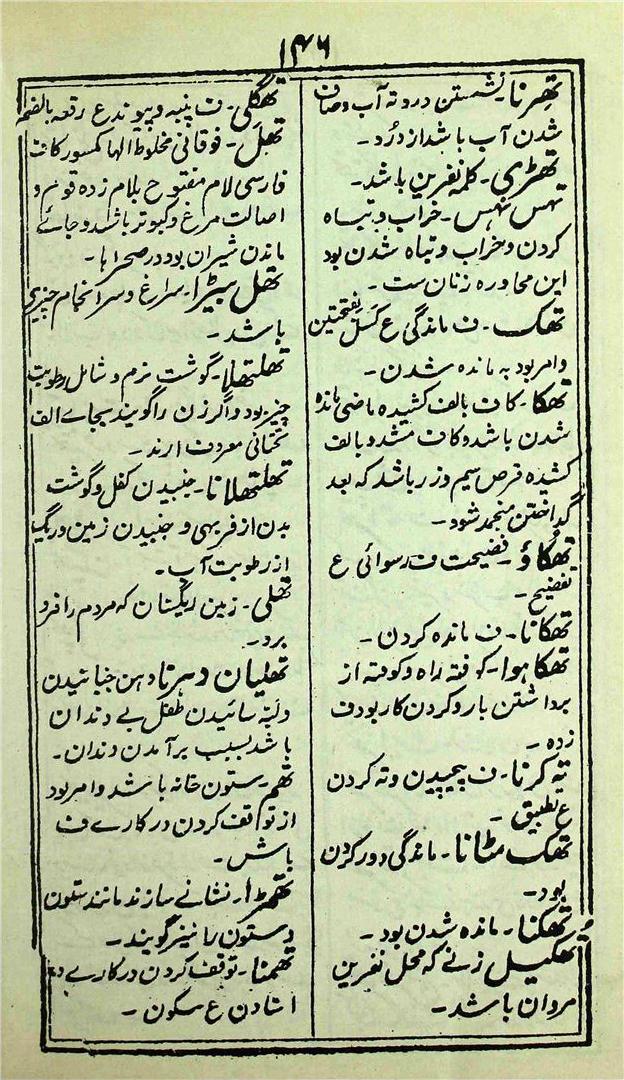 ۱۴۶
تھرنا۔ نشستن درو تہ آب وصان
شدن آب باشد از دُرد۔
تھڑی۔ کلمہ نفرین باشد۔
تہس نہس۔ خراب و تباہ
کردن و خراب و تباہ شدن بود
این محاورہ زنان ست۔
تھک۔ ف ماندگی ع کسل بفتحتین
و امر بود بہ ماندہ شدن۔
تھکا۔ کاف بالف کشیدہ ماضی ماندہ
شدن باشد و کاف مشدد بالف
کشیدہ قرص سیم و زر باشد کہ بعد
گداختن منجمد شود۔
تھکاؤ۔ فضیحت ف رسوائی ع
تفضیح۔
تھکانا۔ ف ماندہ کردن۔
تھکا ہوا۔ کوفتہ راہ و کوفتہ از
برداشتن بار و کردن کار بود ف
زدہ۔
تہ کرنا۔ ف پیچیدن و تہ کردن
ع تطبیق۔
تھک مٹانا۔ ماندگی دور کردن
بود۔
تھکنا۔ ماندہ شدن بود۔
تھکیل زنے کہ محل نفرین
مردان باشد۔
تھگلی۔ ف پنبہ و پیوند ع رقعہ بالضم
تھل۔ فوقانی مخلوط الہا مکسور کاف
فارسی لام مفتوح بلام زدہ قوم و
اصالت مرغ و کبوتر باشد و جائے
ماندن شیران بود در صحراہا۔
تھل بیڑا۔ سراغ و سرانجام چیزی
باشد۔
تھلتھلا۔ گوشت نرم و شامل رطوبت
چیز بود و اگر زن را گویند بجاے الف
تحتانی معروف ارند۔
تھلتھلانا۔ جنبیدن کفل و گوشت
بدن از فربہی و جنبیدن زمین و ریگ
از رطوبت آب۔
تھلی۔ زمین ریگستان کہ مردم را فرو
برد۔
تھلیان دہرنا دہن جنبانیدن
و لبہ سائیدن طفل بے دندان
باشد بسبب برآمدن دندان۔
تھم۔ ستون خانہ باشد و امر بود
از توقف کردن در کارے ف
باش۔
تھمڑا۔ نشانے سازند مانند ستون
و ستون را نیز گویند۔
تھمنا۔ توقف کردن در کارے و
استادن ع سکون۔